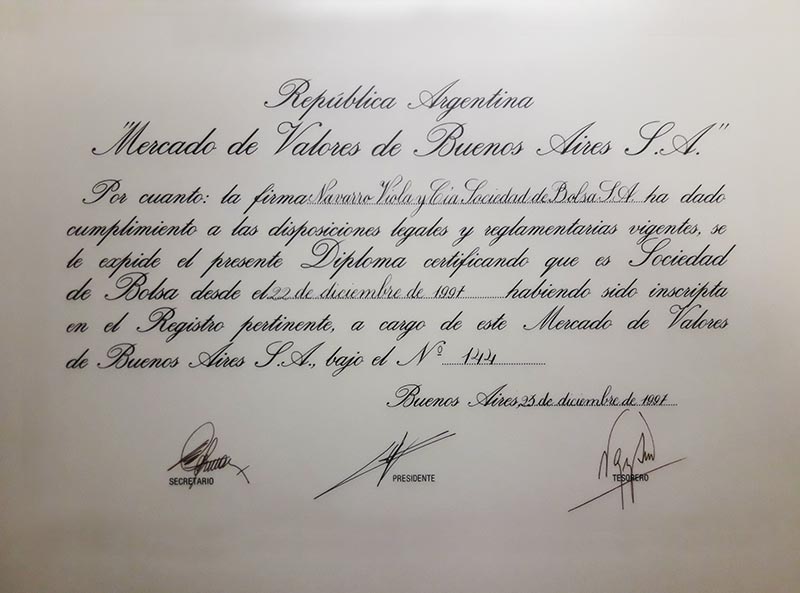 República Argentina
"Mercado de Valores de Buenos Aires S.A."
Por cuanto: la firma Navarro Viola y Cía Sociedad de Bolsa S.A. ha dado
cumplimiento a las disposiciones legales y reglamentarias vigentes, se
le expide el presente Diploma certificando que es Sociedad
de Bolsa desde el 22 de diciembre de 1997 habiendo sido inscripta
en el Registro pertinente, a cargo de este Mercado de Valores
de Buenos Aires S.A., bajo el Nº 144
Buenos Aires, 23 de diciembre de 1997
SECRETARIO PRESIDENTE TESORERO